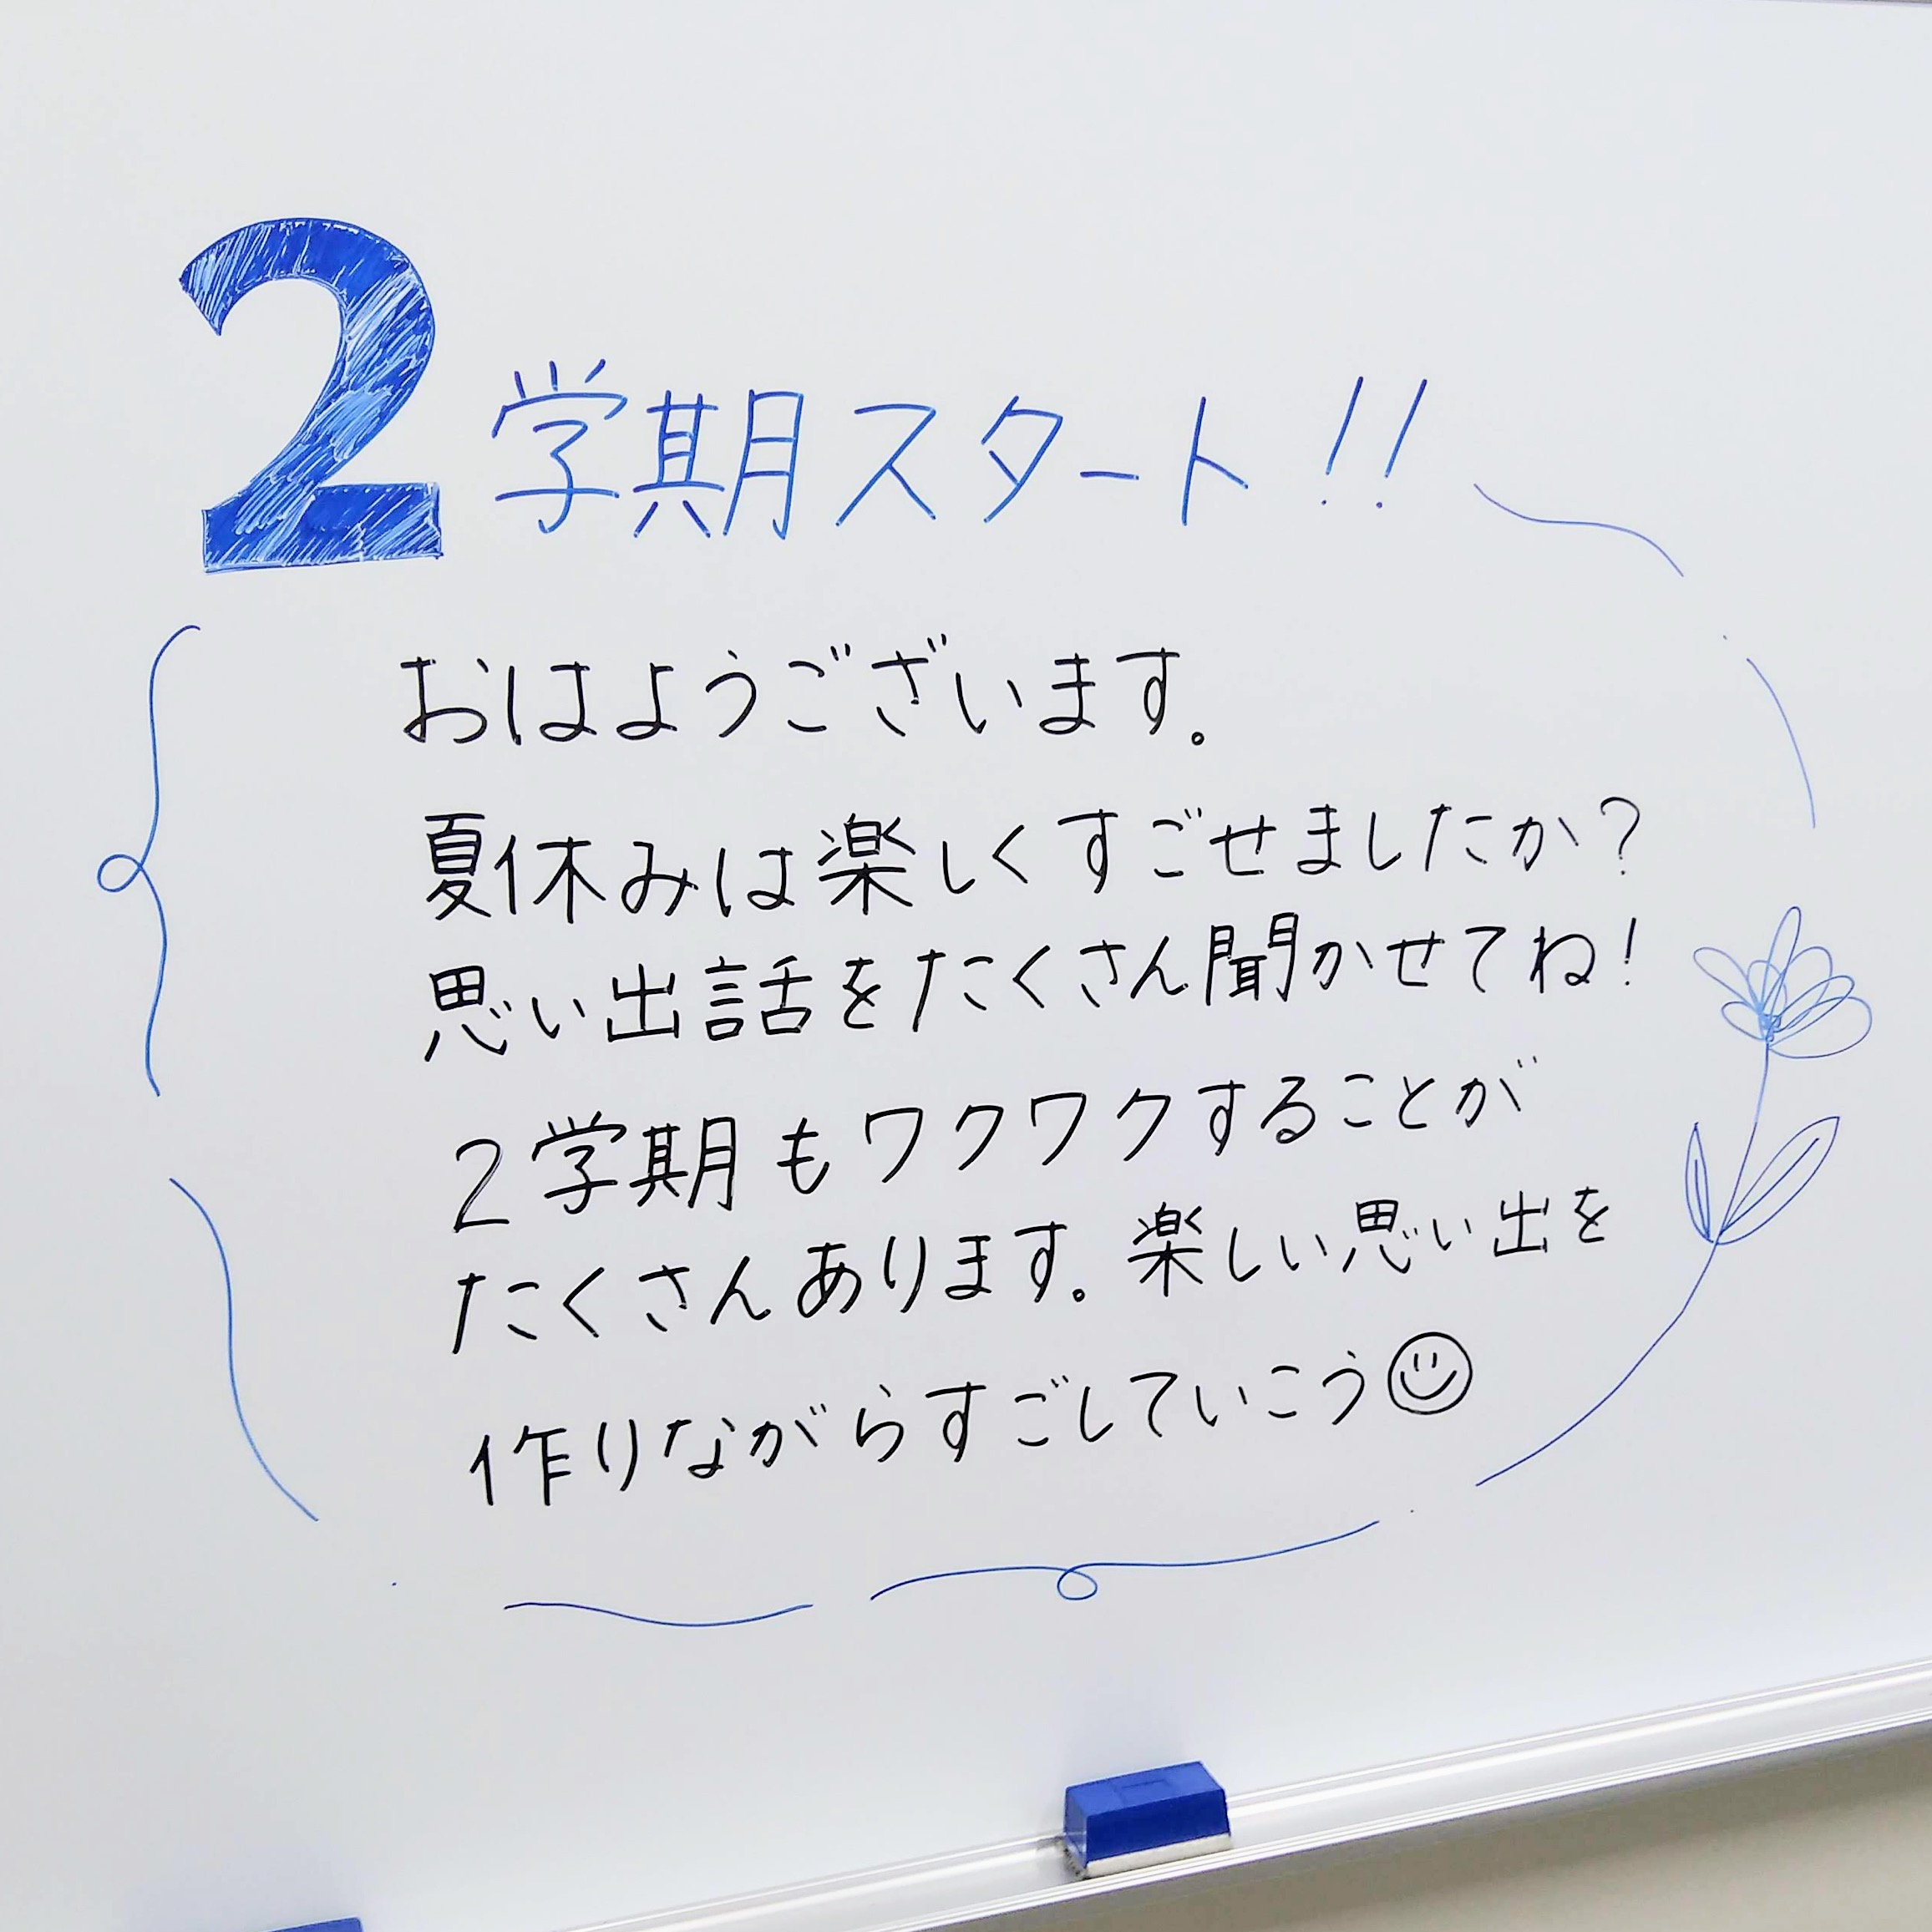 2学期スタート!!
おはようございます。
夏休みは楽しくすごせましたか?
思い出話をたくさん聞かせてね!
2学期もワクワクすることが
たくさんあります。楽しい思い出を
作りながらすごしていこう